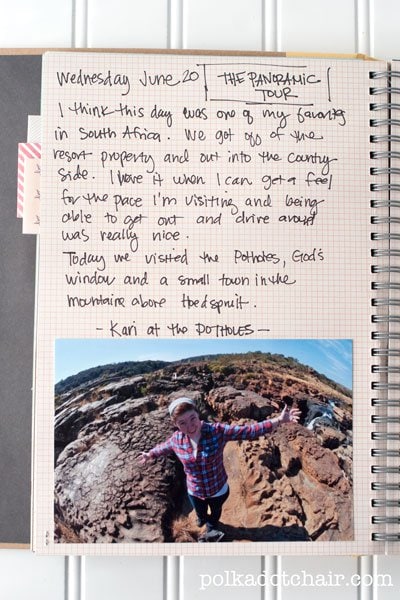 Wednesday June 20
THE PANORAMIC
TOUR
I think this day was one of my favorites
in South Africa. We got off of the
resort property and out into the country
side. I love it when I can get a feel
for the place I'm visiting and being
able to get out and drive around
was really nice.
Today we visited the Potholes, God's
window and a small town in the
mountains above Hoedspruit.
- Kari at the POTHOLES -
polkadotchair.com